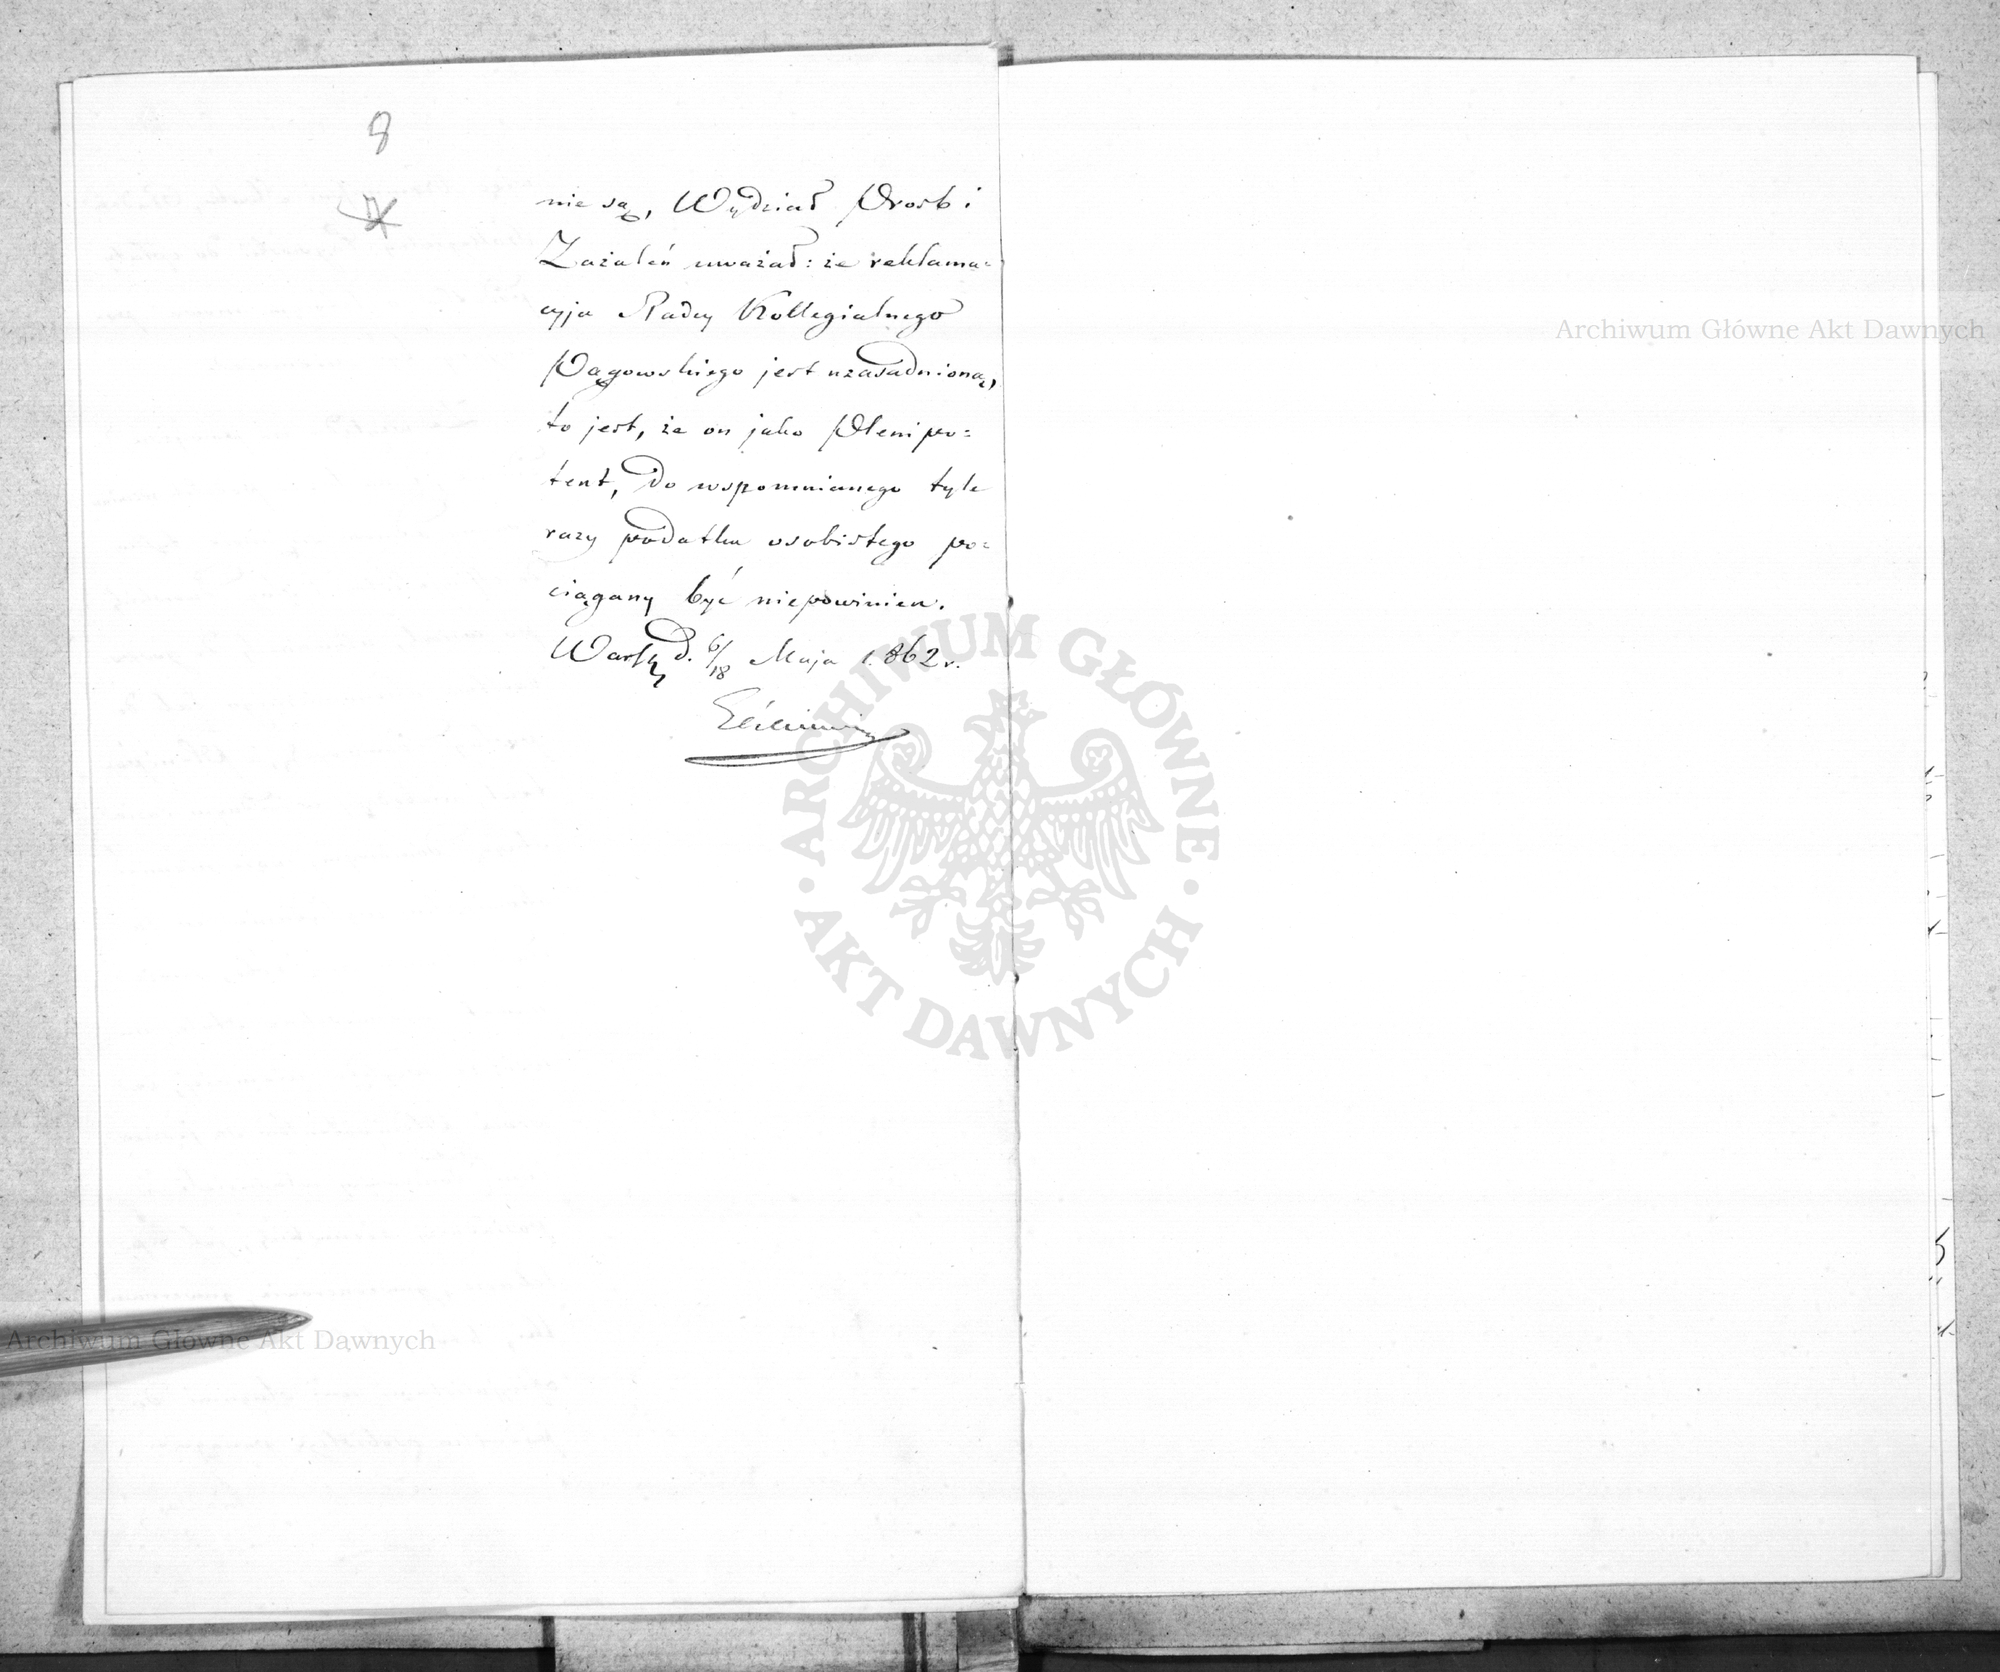 8
nie są, Wydział Prosb i
Zażaleń uważał: że reklama=
cyja Radcy Kollegialnego
Pągowskiego jest uzasadnioną,
to jest, że on jako Plenipo=
tent, do wspomnianego tyle
razy podatku osobistego po=
ciągany być niepowinien.
d. 6/18 Maja 1862 r.
Archiwum Główne Akt Dawnych
ARCHIWUM GŁÓWNE
AKT DAWNYCH
Archiwum Główne Akt Dawnych